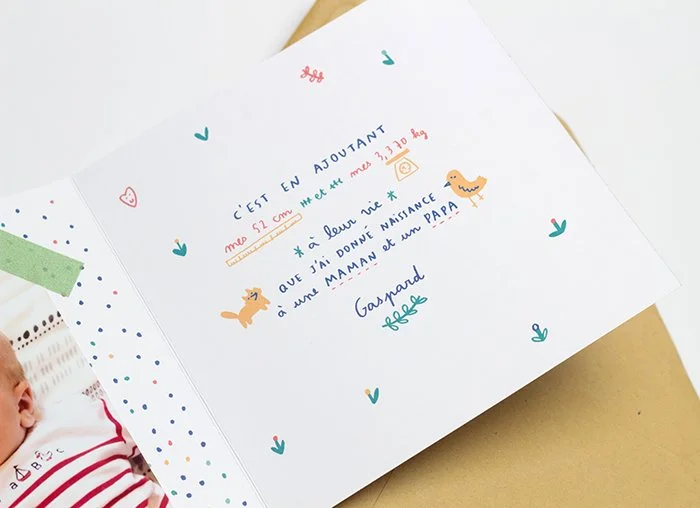 C'EST EN AJOUTANT
mes 52 cm et mes 3,370 kg
* à leur vie *
QUE J'AI DONNÉ NAISSANCE
à une MAMAN et un PAPA
Gaspard